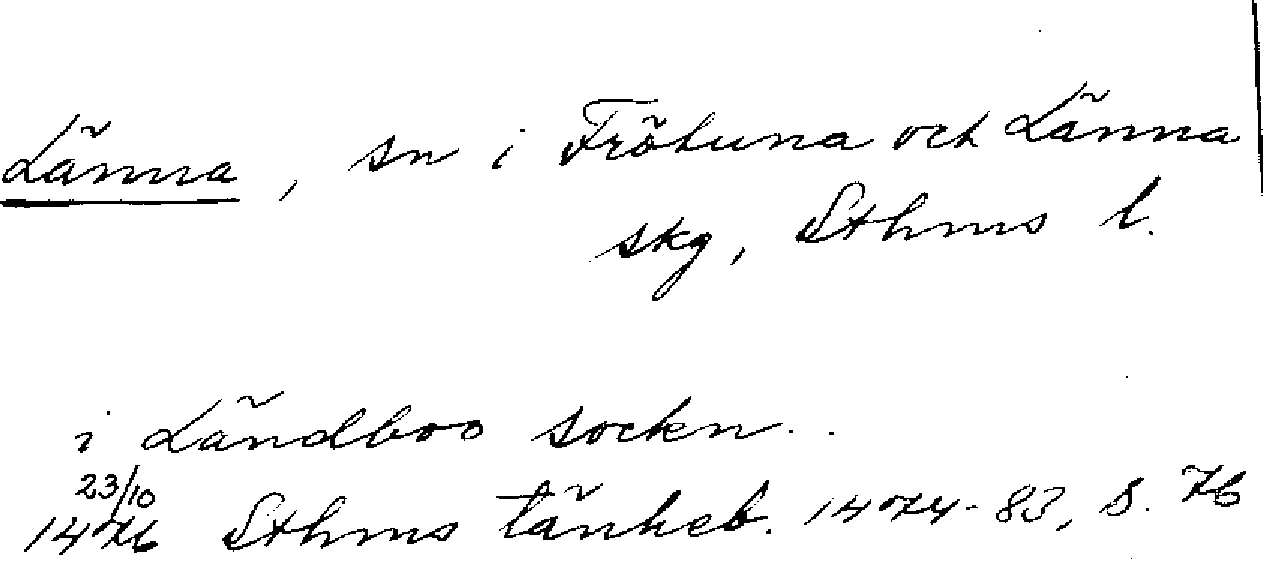 Länna, sn i Frötuna och Länna
skg, Sthms l.
i Ländboo sockn..
23/10
1476 Sthms tänkeb. 1474-83, s. 76